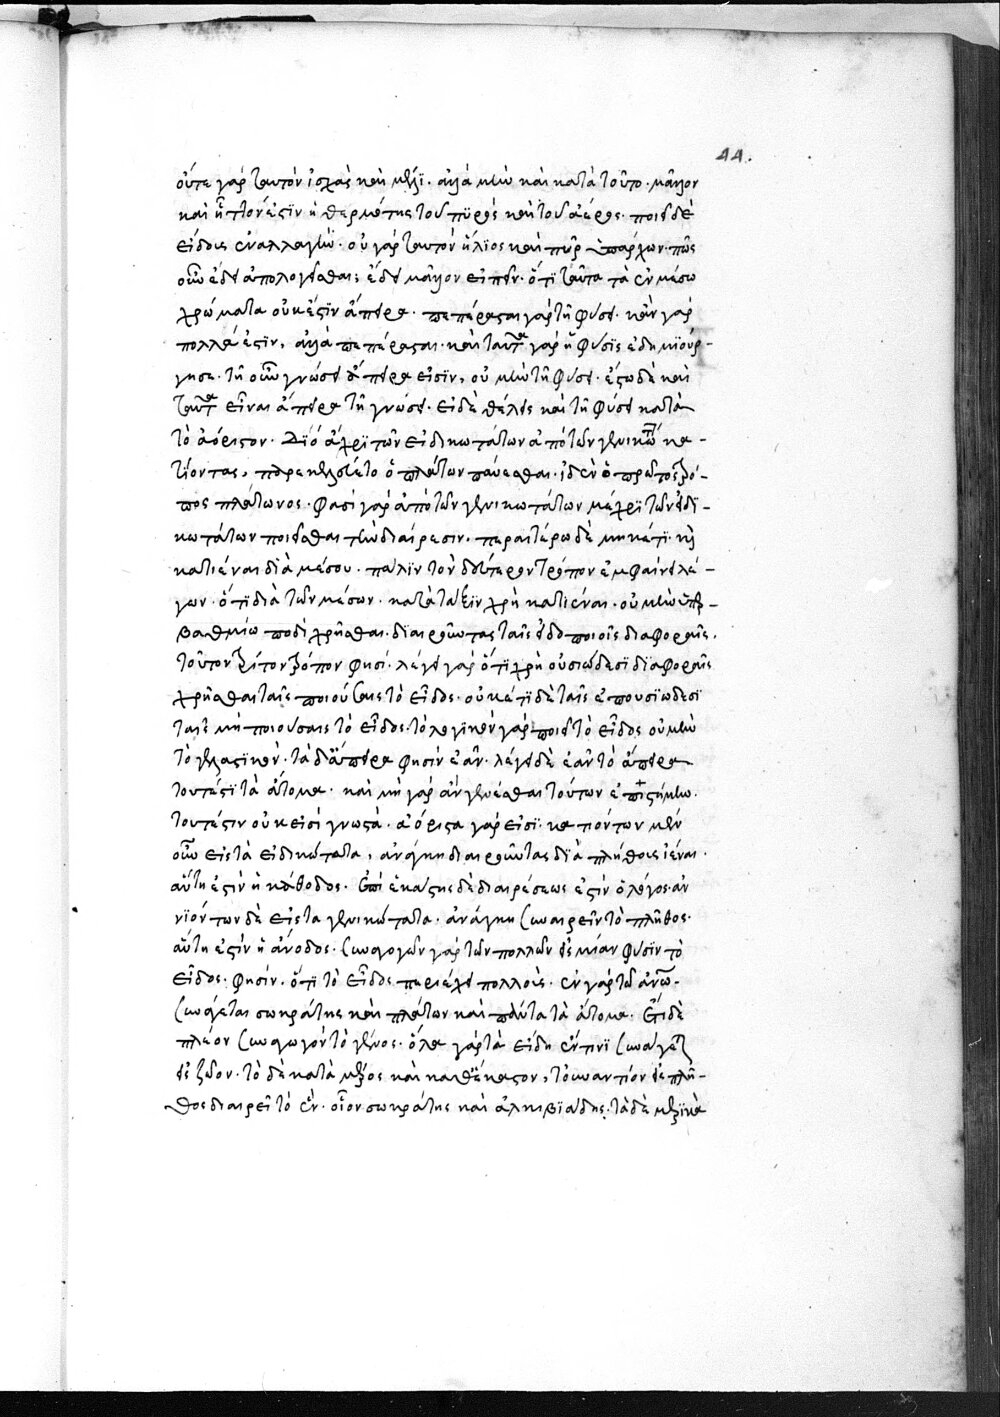 44.
οὔτε γὰρ ταυτὸν ἰσχὰς καὶ μέλι. ἀλλὰ μὴν καὶ κατὰ τοῦτο. μᾶλλον
καὶ ἧττον ἐστὶν ἡ θερμότης τοῦ πυρὸς καὶ τοῦ ἀέρος. ποιεῖ δὲ
εἴδους ἐναλλαγήν. οὐ γὰρ ταυτὸν ἥλιος καὶ πῦρ ὑπάρχων. πῶς
οὖν ἔδει ἀπολογεῖσθαι; ἔδει μᾶλλον εἰπεῖν. ὅτι ταῦτα τὰ ἐν μέσω
χρώματα οὐκ ἔστιν ἄπειρα. πεπέρασται γὰρ τῇ φύσει. κἂν γὰρ
πολλά ἐστιν, ἀλλὰ πεπέρασται. καὶ ταῦτα γὰρ ἡ φύσις ἐδημιούρ-
γησε. τῇ οὖν γνώσει ἄπειρα εἰσίν, οὐ μὴν τῇ φύσει. ἔστω δὲ καὶ
ταῦτα εἶναι ἄπειρα τῇ γνώσει. εἰ δὲ θέλεις καὶ τῇ φύσει κατὰ
τὸ ἀόριστον. Διό ἄχρι τῶν εἰδικωτάτων ἀπὸ τῶν γενικωτάτων κα-
τιόντας, παρεκελεύετο ὁ πλάτων παύεσθαι. ἰδ ἐν ὁ πρῶτος τρό-
πος πλάτωνος. φασί γὰρ ἀπὸ τῶν γενικωτάτων μέχρι τῶν εἰδι-
κωτάτων ποιεῖσθαι τὴν διαίρεσιν. περαιτέρω δὲ μηκέτι κὴ
κατιέναι διὰ μέσου. πάλιν τὸν δεύτερον τρόπον ἐμφαίνει λέ-
γων. ὅτι διὰ τῶν μέσων. κατὰ τάξιν χρὴ κατιέναι. οὐ μὴν ὑπερ-
βαθμίω ποδὶ χρῆσθαι. διαιροῦντας ταῖς εἰδοποιοῖς διαφοραῖς.
τοῦτον τρίτον τρόπον φησί. λέγει γὰρ ὅτι χρὴ οὐσιώδεσι διαφοραῖς
χρῆσθαι ταῖς ποιούσαις τὸ εἶδος. οὐκέτι δὲ ταῖς ἐπουσιώδεσι
ταῖς μὴ ποιούσαις τὸ εἶδος. τὸ λογικὸν γὰρ ποιεῖ τὸ εἶδος οὐ μὴν
τὸ γελαστικόν. τὰ δὲ ἄπειρα φησίν ἐᾶν. λέγει δὲ ἐᾶν τὸ ἄπειρα
τουτέστι τὰ ἄτομα. καὶ μὴ γὰρ ἂν γενέσθαι τούτων ἐπιστήμην.
τουτέστιν οὐκ εἰσί γνωστά. ἀόριστα γάρ εἰσι. κατιόντων μὲν
οὖν εἰς τὰ εἰδικώτατα, ἀνάγκη διαιροῦντας διὰ πλήθους ἰέναι.
αὕτη ἐστὶν ἡ κάθοδος. ἐπὶ ἑκάστης δὲ διαιρέσεως ἐστὶν ὁ λόγος. ἀν
νιόντων δὲ εἰς τα γενικώτατα. ἀνάγκη συναιρεῖν τὸ πλῆθος.
αὕτη ἐστὶν ἡ ἄνοδος. συναγωγὸν γὰρ τῶν πολλῶν εἰς μίαν φύσιν τὸ
εἶδος. φησίν. ὅτι τὸ εἶδος περιέχει πολλούς. ἐν γὰρ τῶ ἀνω-
συνάγεται σωκράτης καὶ πλάτων καὶ πάντα τὰ ἄτομα. Ἔτι δὲ
πλέον συναγωγὸν τὸ γένος. ὅλα γὰρ τὰ εἴδη ἕν τινι συνάγεται
εἰς ζῶον. τὸ δὲ κατὰ μέρος καὶ καθέκαστον, τοὐναντίον εἰς πλῆ-
θος διαιρεῖ τὸ ἕν. οἷον σωκράτης καὶ ἀλκιβιάδης. τὰ δὲ μερικὰ